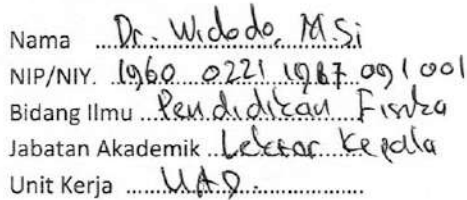 Nama ....Dr. Widodo, M.Si
NIP/NIY. 1960 0221 1987 091 001
Bidang Ilmu ....Pendidikan Fisika
Jabatan Akademik ....Lektor Kepala
Unit Kerja ......UAD.....................